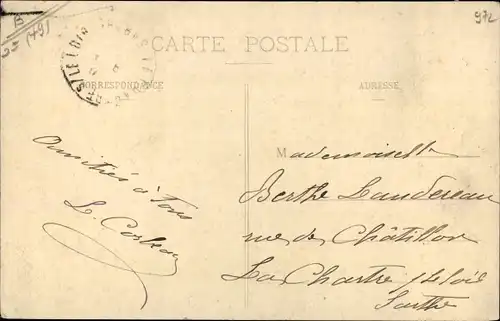 B
972
25 (79)
CARTE POSTALE
CORRESPONDANCE
ADRESSE
Mademoiselle
Berthe Landereau
rue de Châtillon
La Chartre s/ le loir
Sarthe
Amitiés à Tous
L.